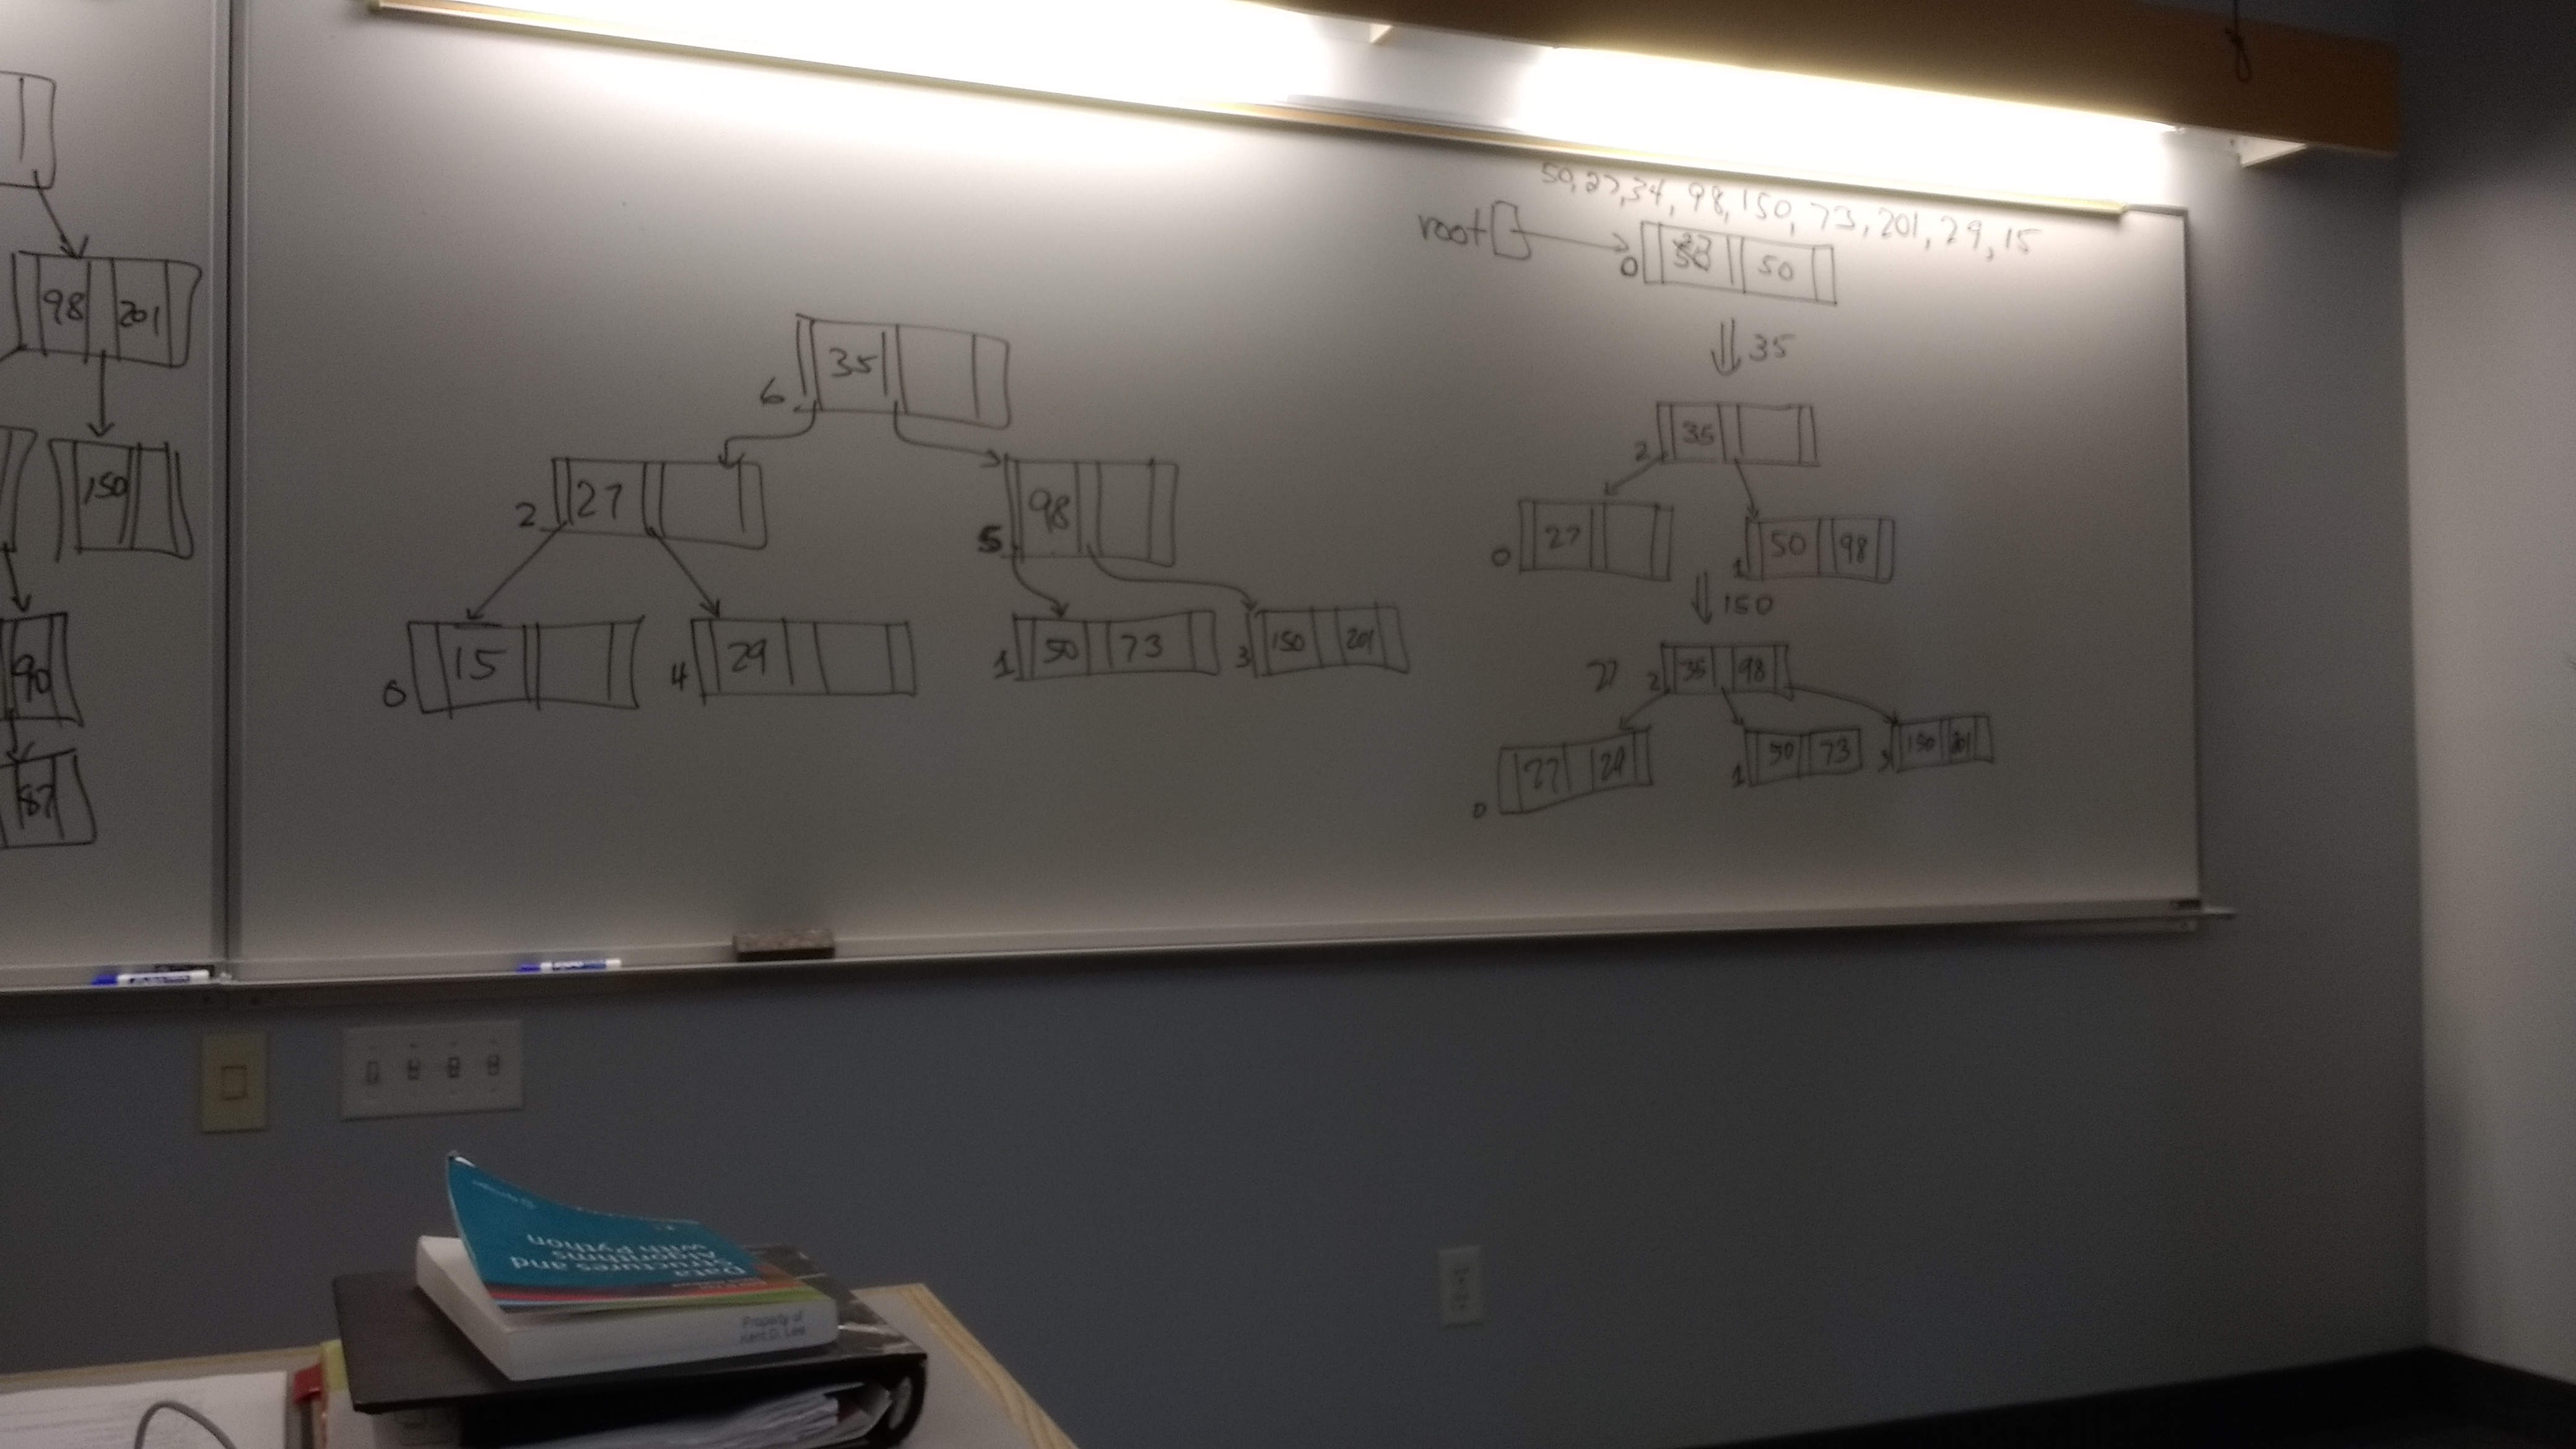 98 201
150
90
87
6 35
2 27
5 98
0 15
4 29
1 50 73
3 150 201
50, 27, 34, 98, 150, 73, 201, 29, 15
root
0 50
35
2 35
0 27
1 50 98
150
27 2 35 98
0 27 29
1 50 73
3 150 201
Data
Structures and
Algorithms
with Python
Property of
Kent D. Lee